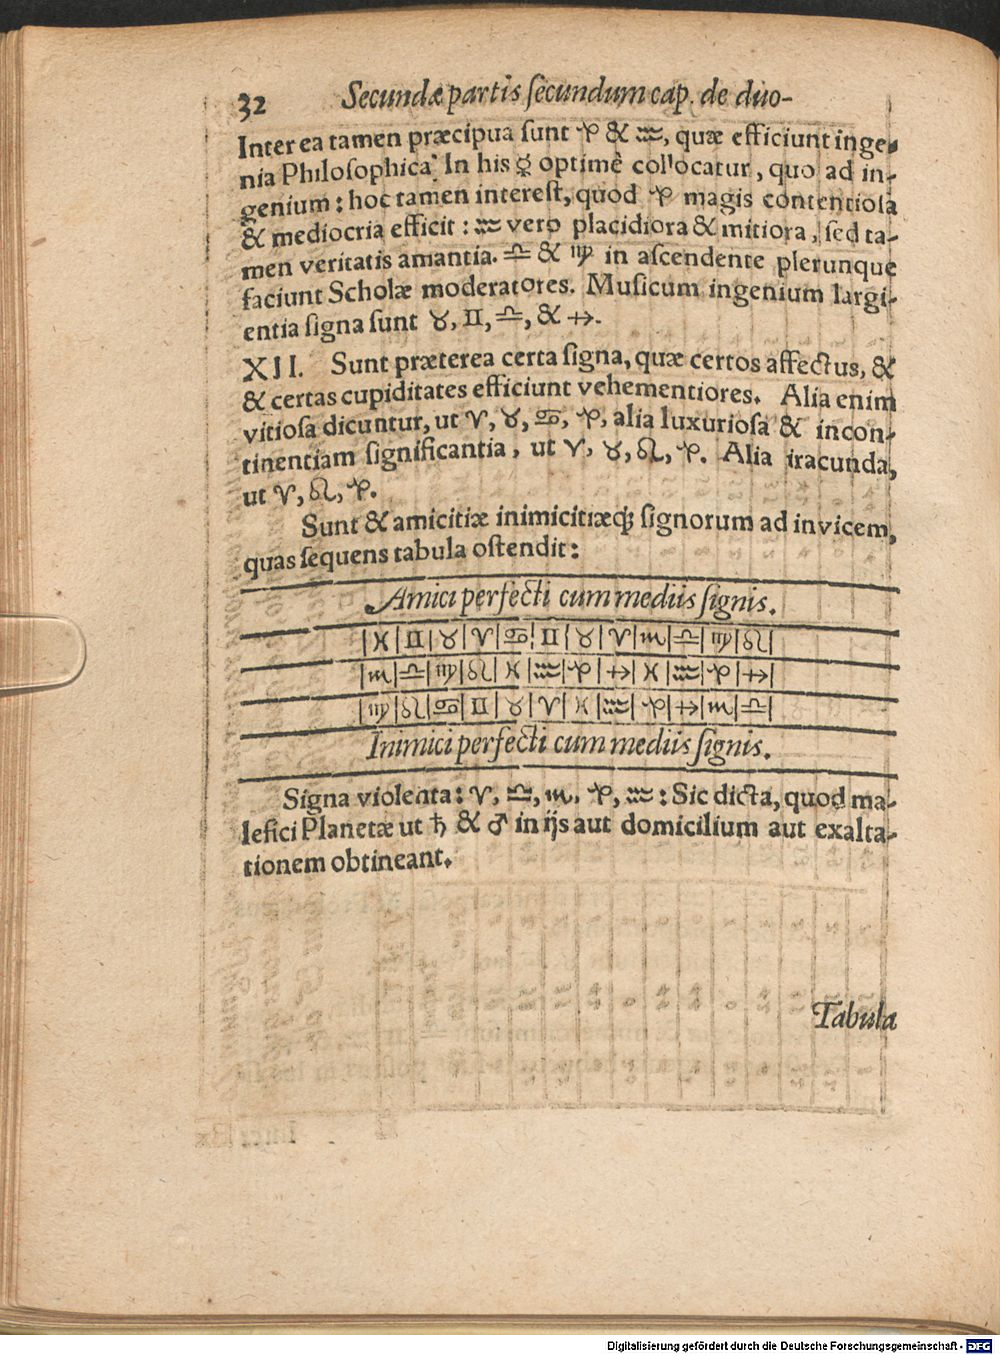 32 Secundæ partis ſecundum cap. de duo-
Inter ea tamen præcipua ſunt ♑ & ♒, quæ efficiunt inge-
nia Philoſophica: In his ☿ optimè collocatur, quo ad in-
genium: hoc tamen intereſt, quod ♑ magis contentioſa
& mediocria efficit: ♒ vero placidiora & mitiora, ſed ta-
men veritatis amantia. ♎ & ♍ in aſcendente plerunque
faciunt Scholæ moderatores. Muſicum ingenium largi-
entia ſigna ſunt ♉, ♊, ♎, & ♐.
XII. Sunt præterea certa ſigna, quæ certos affectus, &
& certas cupiditates efficiunt vehementiores. Alia enim
vitioſa dicuntur, ut ♈, ♉, ♋, ♑, alia luxurioſa & incon-
tinentiam ſignificantia, ut ♈, ♉, ♌, ♑. Alia iracunda,
ut ♈, ♌, ♑.
Sunt & amicitiæ inimicitiæq́; ſignorum ad invicem,
quas ſequens tabula oſtendit:
Amici perfecti cum mediis ſignis.
|♓|♊|♉|♈|♋|♊|♉|♈|♏|♎|♍|♌|
|♏|♎|♍|♌|♓|♒|♑|♐|♓|♒|♑|♐|
|♍|♌|♋|♊|♉|♈|♓|♒|♑|♐|♏|♎|
Inimici perfecti cum mediis ſignis.
Signa violenta: ♈, ♎, ♏, ♑, ♒: Sic dicta, quod ma-
lefici Planetæ ut ♄ & ♂ in ijs aut domicilium aut exalta-
tionem obtineant.
Tabula
Digitalisierung gefördert durch die Deutsche Forschungsgemeinschaft - DFG